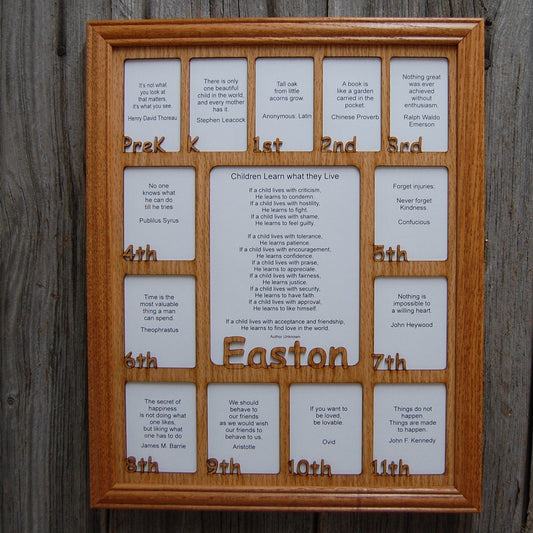 It's not what
you look at
that matters,
it's what you see.
Henry David Thoreau
PreK
There is only
one beautiful
child in the world,
and every mother
has it.
Stephen Leacock
K
Tall oak
from little
acorns grow.
Anonymous: Latin
1st
A book is
like a garden
carried in the
pocket.
Chinese Proverb
2nd
Nothing great
was ever
achieved
without
enthusiasm.
Ralph Waldo
Emerson
3rd
No one
knows what
he can do
till he tries
Publilius Syrus
4th
Children Learn what they Live
If a child lives with criticism,
He learns to condemn.
If a child lives with hostility,
He learns to fight.
If a child lives with shame,
He learns to feel guilty.
If a child lives with tolerance,
He learns patience.
If a child lives with encouragement,
He learns confidence.
If a child lives with praise,
He learns to appreciate.
If a child lives with fairness,
He learns justice.
If a child lives with security,
He learns to have faith.
If a child lives with approval,
He learns to like himself.
If a child lives with acceptance and friendship,
He learns to find love in the world.
Author Unknown
Easton
Forget injuries.
Never forget
Kindness.
Confucious
5th
Time is the
most valuable
thing a man
can spend.
Theophrastus
6th
Nothing is
impossible to
a willing heart.
John Heywood
7th
The secret of
happiness
is not doing what
one likes,
but liking what
one has to do
James M. Barrie
8th
We should
behave to
our friends
as we would wish
our friends to
behave to us.
Aristotle
9th
If you want to
be loved,
be lovable
Ovid
10th
Things do not
happen.
Things are made
to happen.
John F. Kennedy
11th